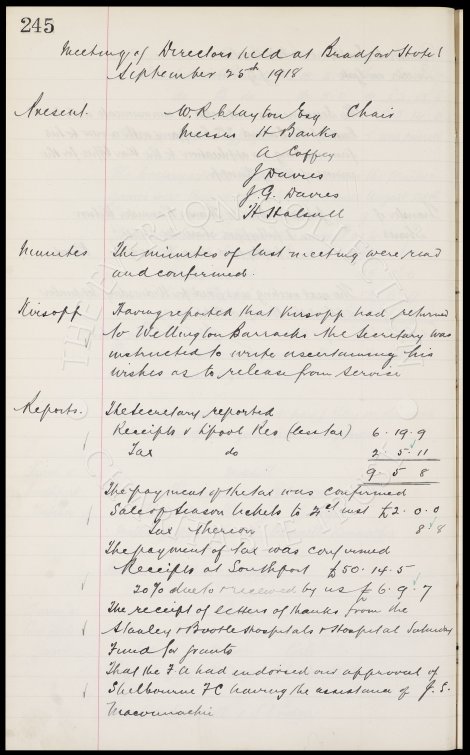 245
Meeting of Directors held at Bradford Hotel
September 25th 1918
Present. W. R. Clayton Esq Chair
Messrs H Banks
A Coffey
J Davies
J. G. Davies
H Halsall
Minutes The minutes of last meeting were read
and confirmed.
Kirsopp Having reported that Kirsopp had returned
to Wellington Barracks the Secretary was
instructed to write ascertaining his
wishes as to release from service
Reports. The Secretary reported
Receipts v Lpool Res (less tax) 6. 19. 9
Tax do 2. 5. 11
9 5 8
The payment of the tax was confirmed
Sale of Season tickets to inst £2. 0. 0
Tax thereon 8 8
The payment of tax was confirmed
Receipts at Southport £50. 14. 5
20% due to & received by us £6. 9. 7
The receipt of letters of thanks from the
Stanley & Bootle Hospitals & Hospital Saturday
Fund for grants
That the F A had endorsed our approval of
Shelbourne FC having the assistance of J. S.
Macconnachie